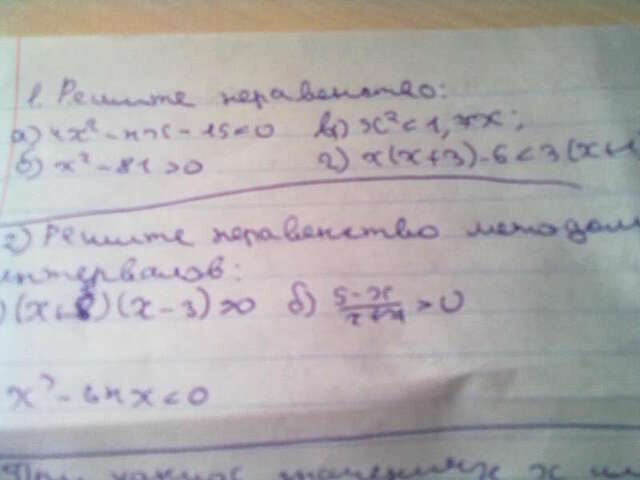 1. Решите неравенство:
а) 4x² - 4x - 15 < 0 в) x² < 1,7x;
б) x² - 81 > 0 г) x(x+3) - 6 < 3(x+1
2) Решите неравенство методом
интервалов:
) (x+8)(x-3) > 0 б) 5-x/x+4 > 0
x³ - 64x < 0
При каких значениях x